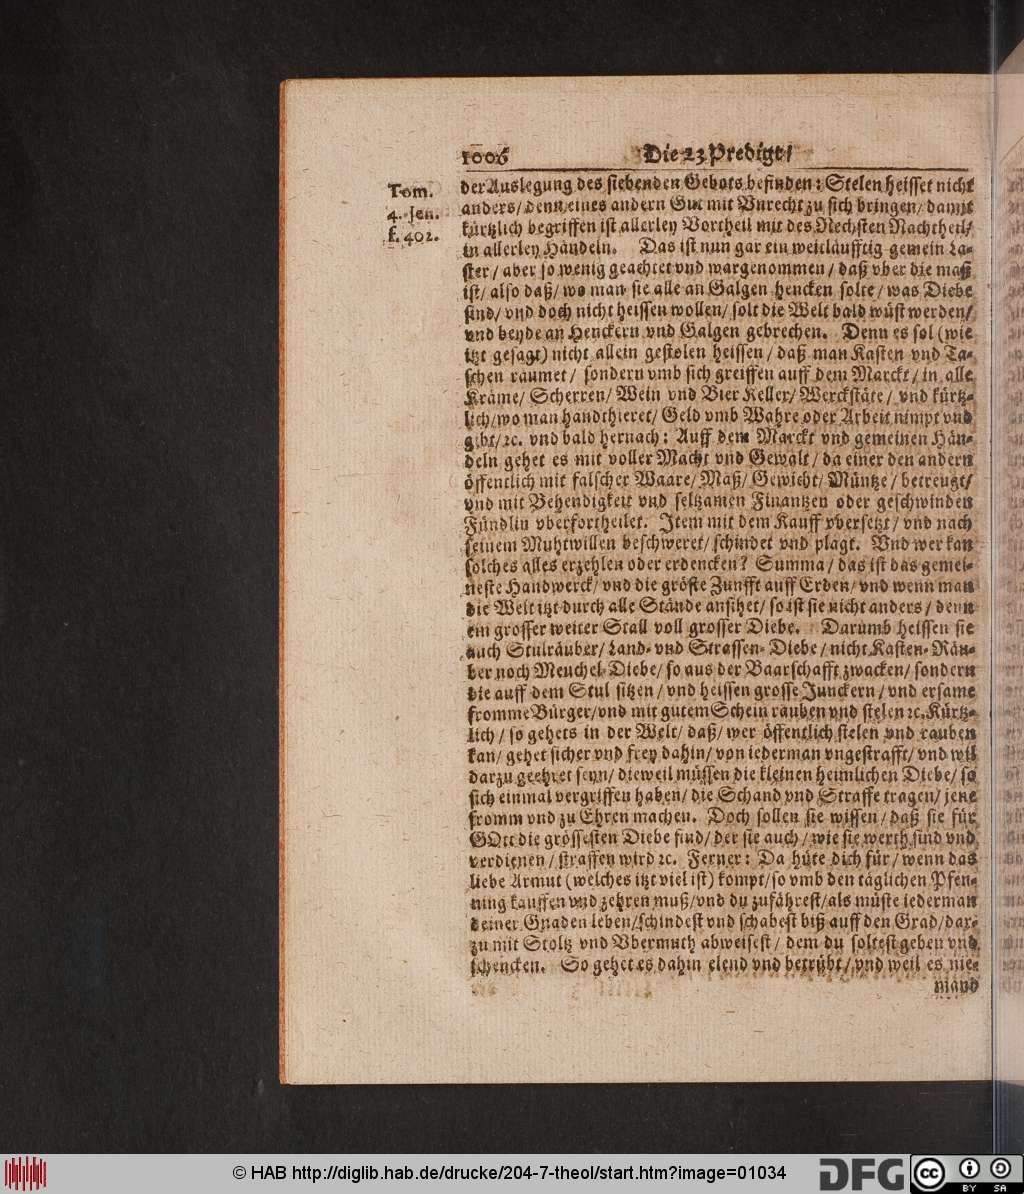 1006 Die 23. Predigt/
Tom.
4. Jen.
f. 402.
der Auslegung des siebenden Gebots befinden: Stelen heisset nicht
anders/ denn eines andern Gut mit Vnrecht zu sich bringen/ damit
kürtzlich begriffen ist allerley Vortheil mit des Nechsten Nachtheil/
in allerley Händeln. Das ist nun gar ein weitläufftig gemein La-
ster/ aber so wenig geachtet vnd wargenommen/ daß vber die maß
ist/ also daß/ wo man sie alle an Galgen hencken solte/ was Diebe
sind/ vnd doch nicht heissen wollen/ solt die Welt bald wüst werden/
vnd beyde an Henckern vnd Galgen gebrechen. Denn es sol (wie
itzt gesagt) nicht allein gestolen heissen/ daß man Kasten vnd Ta-
schen raumet/ sondern vmb sich greiffen auff dem Marckt/ in alle
Kräme/ Scherren/ Wein vnd Bier Keller/ Werckstäte/ vnd kürtz-
lich/ wo man handthieret/ Geld vmb Wahre oder Arbeit nimpt vnd
gibt/ ꝛc. vnd bald hernach: Auff dem Marckt vnd gemeinen Hän-
deln gehet es mit voller Macht vnd Gewalt/ da einer den andern
öffentlich mit falscher Waare/ Maß/ Gewicht/ Müntze/ betreugt/
vnd mit Behendigkeit vnd seltzamen Finantzen oder geschwinden
Fündlin vberfortheilet. Item mit dem Kauff vbersetzt/ vnd nach
seinem Muhtwillen beschweret/ schindet vnd plagt. Vnd wer kan
solches alles erzehlen oder erdencken? Summa/ das ist das gemei-
neste Handwerck/ vnd die gröste Zunfft auff Erden/ vnd wenn man
die Welt itzt durch alle Stände ansihet/ so ist sie nicht anders/ denn
ein grosser weiter Stall voll grosser Diebe. Darumb heissen sie
auch Stulräuber/ Land- vnd Strassen- Diebe/ nicht Kasten- Räu-
ber noch Meuchel-Diebe/ so aus der Baarschafft zwacken/ sondern
die auff dem Stul sitzen/ vnd heissen grosse Junckern/ vnd ersame
fromme Bürger/ vnd mit gutem Schein rauben vnd stelen ꝛc. Kürtz-
lich/ so gehets in der Welt/ daß/ wer öffentlich stelen vnd rauben
kan/ gehet sicher vnd frey dahin/ von iederman vngestrafft/ vnd wil
darzu geehret seyn/ dieweil müssen die kleinen heimlichen Diebe/ so
sich einmal vergriffen haben/ die Schand vnd Straffe tragen/ jene
fromm vnd zu Ehren machen. Doch sollen sie wissen/ daß sie für
GOtt die grössesten Diebe sind/ der sie auch/ wie sie werth sind vnd
verdienen/ straffen wird ꝛc. Ferner: Da hüte dich für/ wenn das
liebe Armut (welches itzt viel ist) kompt/ so vmb den täglichen Pfen-
ning kauffen vnd zehren muß/ vnd du zufährest/ als müste iederman
deiner Gnaden leben/ schindest vnd schabest biß auff den Grad/ dar-
zu mit Stoltz vnd Vbermuth abweisest/ dem du soltest geben vnd
schencken. So gehet es dahin elend vnd betrübt/ vnd weil es nie-
mand
© HAB http://diglib.hab.de/drucke/204-7-theol/start.htm?image=01034
DFG
cc
BY SA